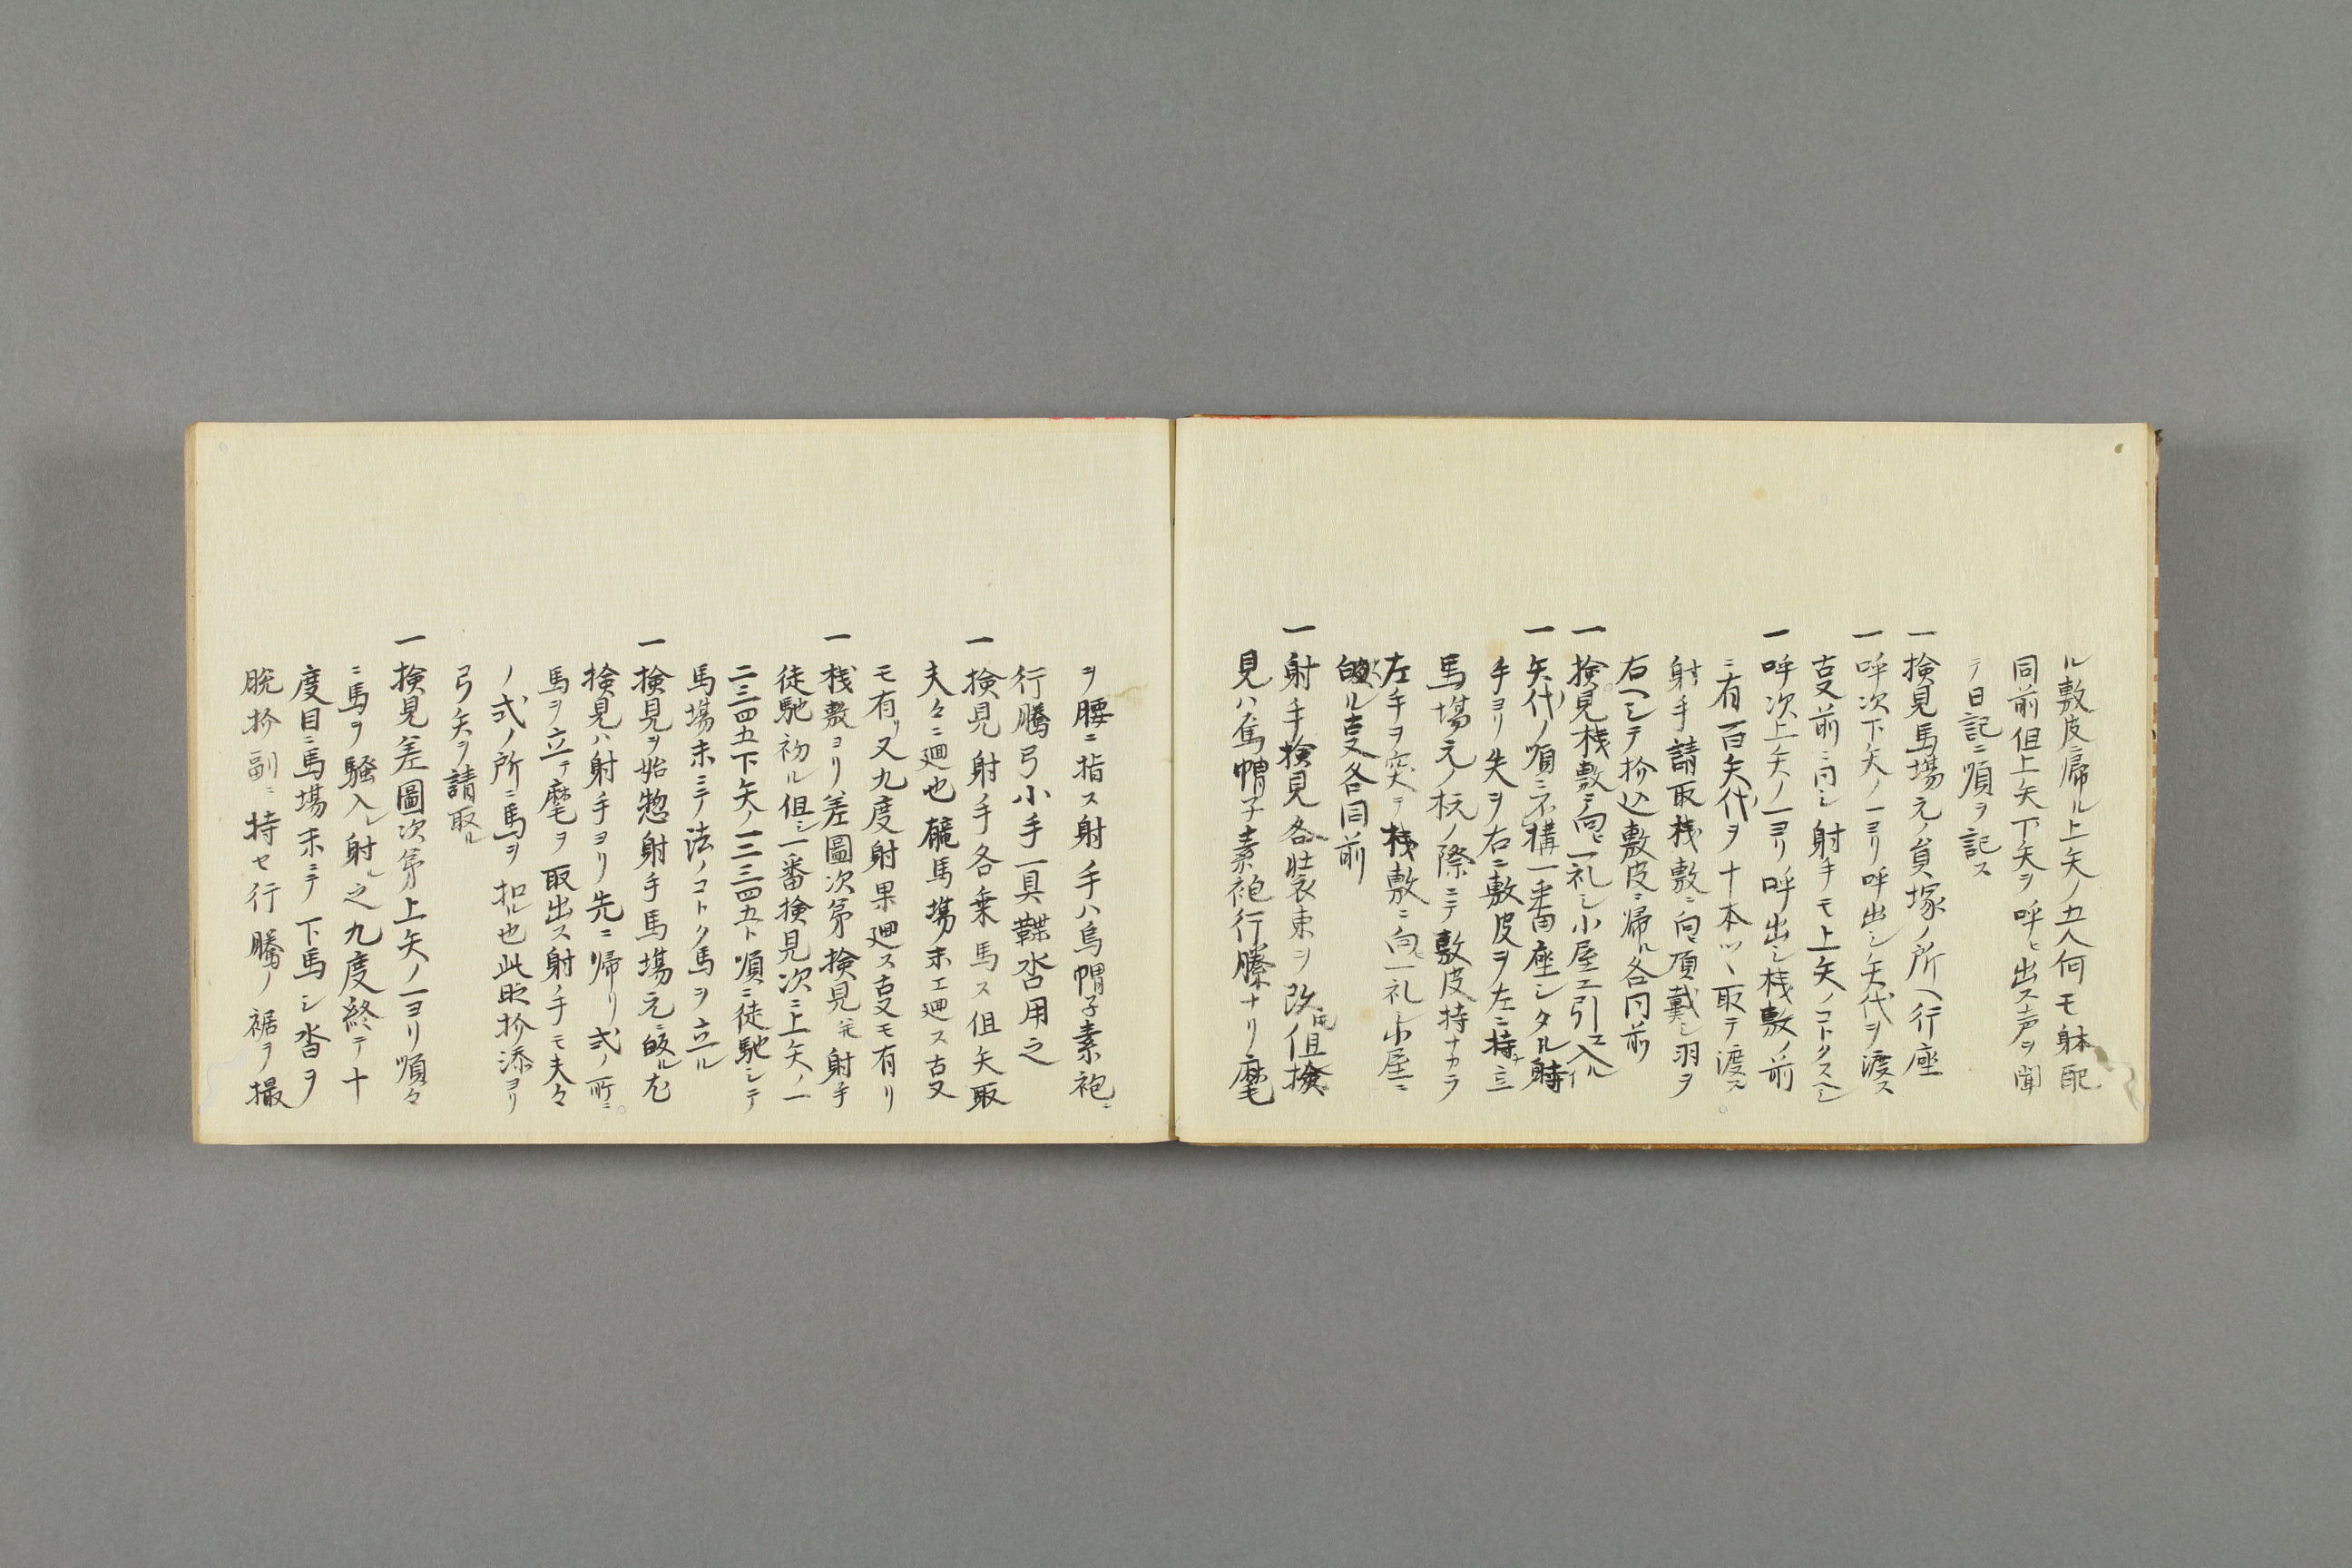 ル敷皮帰ル上矢ノ五人何モ躰配
同前但上矢下矢ヲ呼ヒ出ス声ヲ聞
テ日記ニ順ヲ記ス
一検見馬場元ノ貟塚ノ所ヘ行座
一呼次下矢ノ一ヨリ呼出シ矢代ヲ渡ス
叓前ニ同シ射手モ上矢ノコトクスヘシ
一呼次上矢ノ一ヨリ呼出シ桟敷ノ前
ニ有百矢代ヲ十本ツヽ取テ渡ス
射手請取桟敷ニ向ヒ頂戴シ羽ヲ
右ヘシテ扲込敷皮ニ帰ル各同前
一検見桟敷ニ向ヒ一礼シ小屋エ引エ入ル
一矢代ノ順ニ不構一番座シタル射
手ヨリ矢ヲ右ニ敷皮ヲ左ニ持チ立
馬場元ノ杭ノ際ニテ敷皮持ナカラ
左手ヲ突テ桟敷ニ向ヒ一礼シ小屋ニ
皈ル叓各同前
一射手検見各装束ヲ改ル但検
見ハ烏帽子素袍行騰ナリ麾
ヲ腰ニ指ス射手ハ烏帽子素袍ニ
行騰弓小手一具鞢沓用之
一検見射手各乗馬ス但矢取
夫々ニ廻也麁馬場末エ廻ス叓
モ有リ又九度射果廻ス叓モ有リ
一桟敷ヨリ差圖次第検見并射手
徒馳初ル但シ一番検見次ニ上矢ノ一
二三四五下矢ノ一二三四五ト順ニ徒馳シテ
馬場末ニテ法ノコトク馬ヲ立ル
一検見ヲ始惣射手馬場元ニ皈ル尤
検見ハ射手ヨリ先ニ帰リ式ノ所ニ
馬ヲ立テ麾ヲ取出ス射手モ夫々
ノ式ノ所ニ馬ヲ扣ル也此時扲添ヨリ
弓矢ヲ請取ル
一検見差圖次第上矢ノ一ヨリ順々
ニ馬ヲ騒入レ射ル之九度終テ十
度目ニ馬場末ニテ下馬シ沓ヲ
脱扲副ニ持セ行騰ノ裾ヲ撮